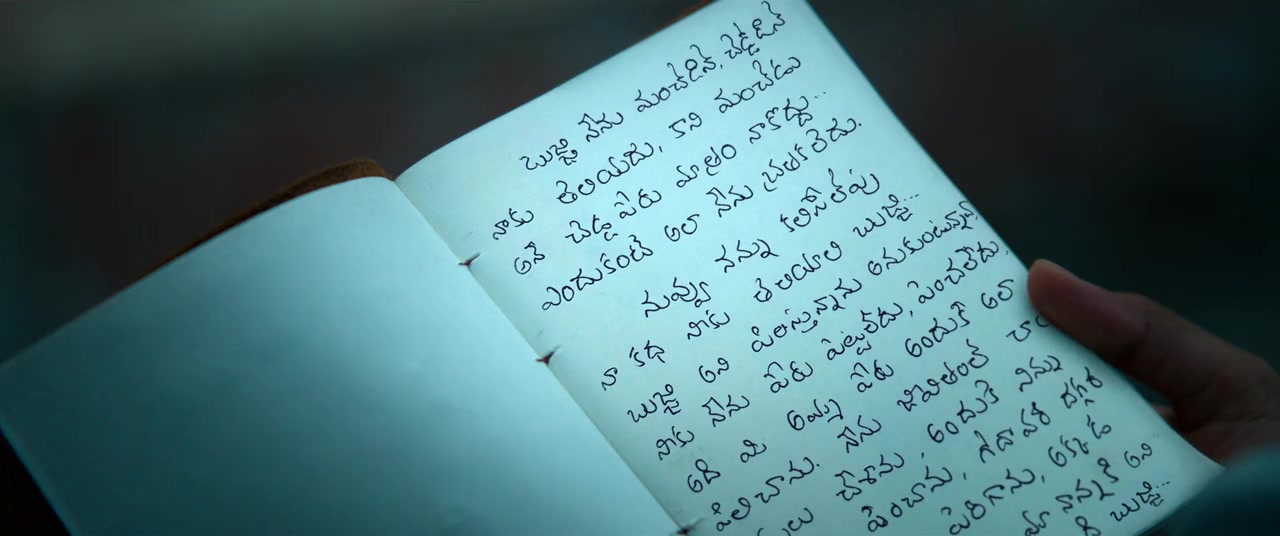 బుజ్జి నేను మంచోడినే, చెడ్డోడినే
నాకు తెలియదు, కాని మంచోడు
అనే చెడ్డ పేరు మాత్రం నాకొద్దు...
ఎందుకంటే అలా నేను బ్రతకలేదు.
నువ్వు నన్ను కలిసేలోపు
నా కథ నీకు తెలియాలి బుజ్జి...
బుజ్జి అని పిలుస్తున్నాను అనుకుంటున్నావా
నీకు నేను పేరు పెట్టలేదు, పెంచలేదు.
అది మీ అమ్మ పేరు అందుకే అలా
పిలిచాను. నేను జీవితంలో
చేశాను, అందుకే నిన్ను
పెంచాను, గోదావరి దగ్గర
పెరిగాను, అక్కడ
మా నాన్నకి అని
బుజ్జి...